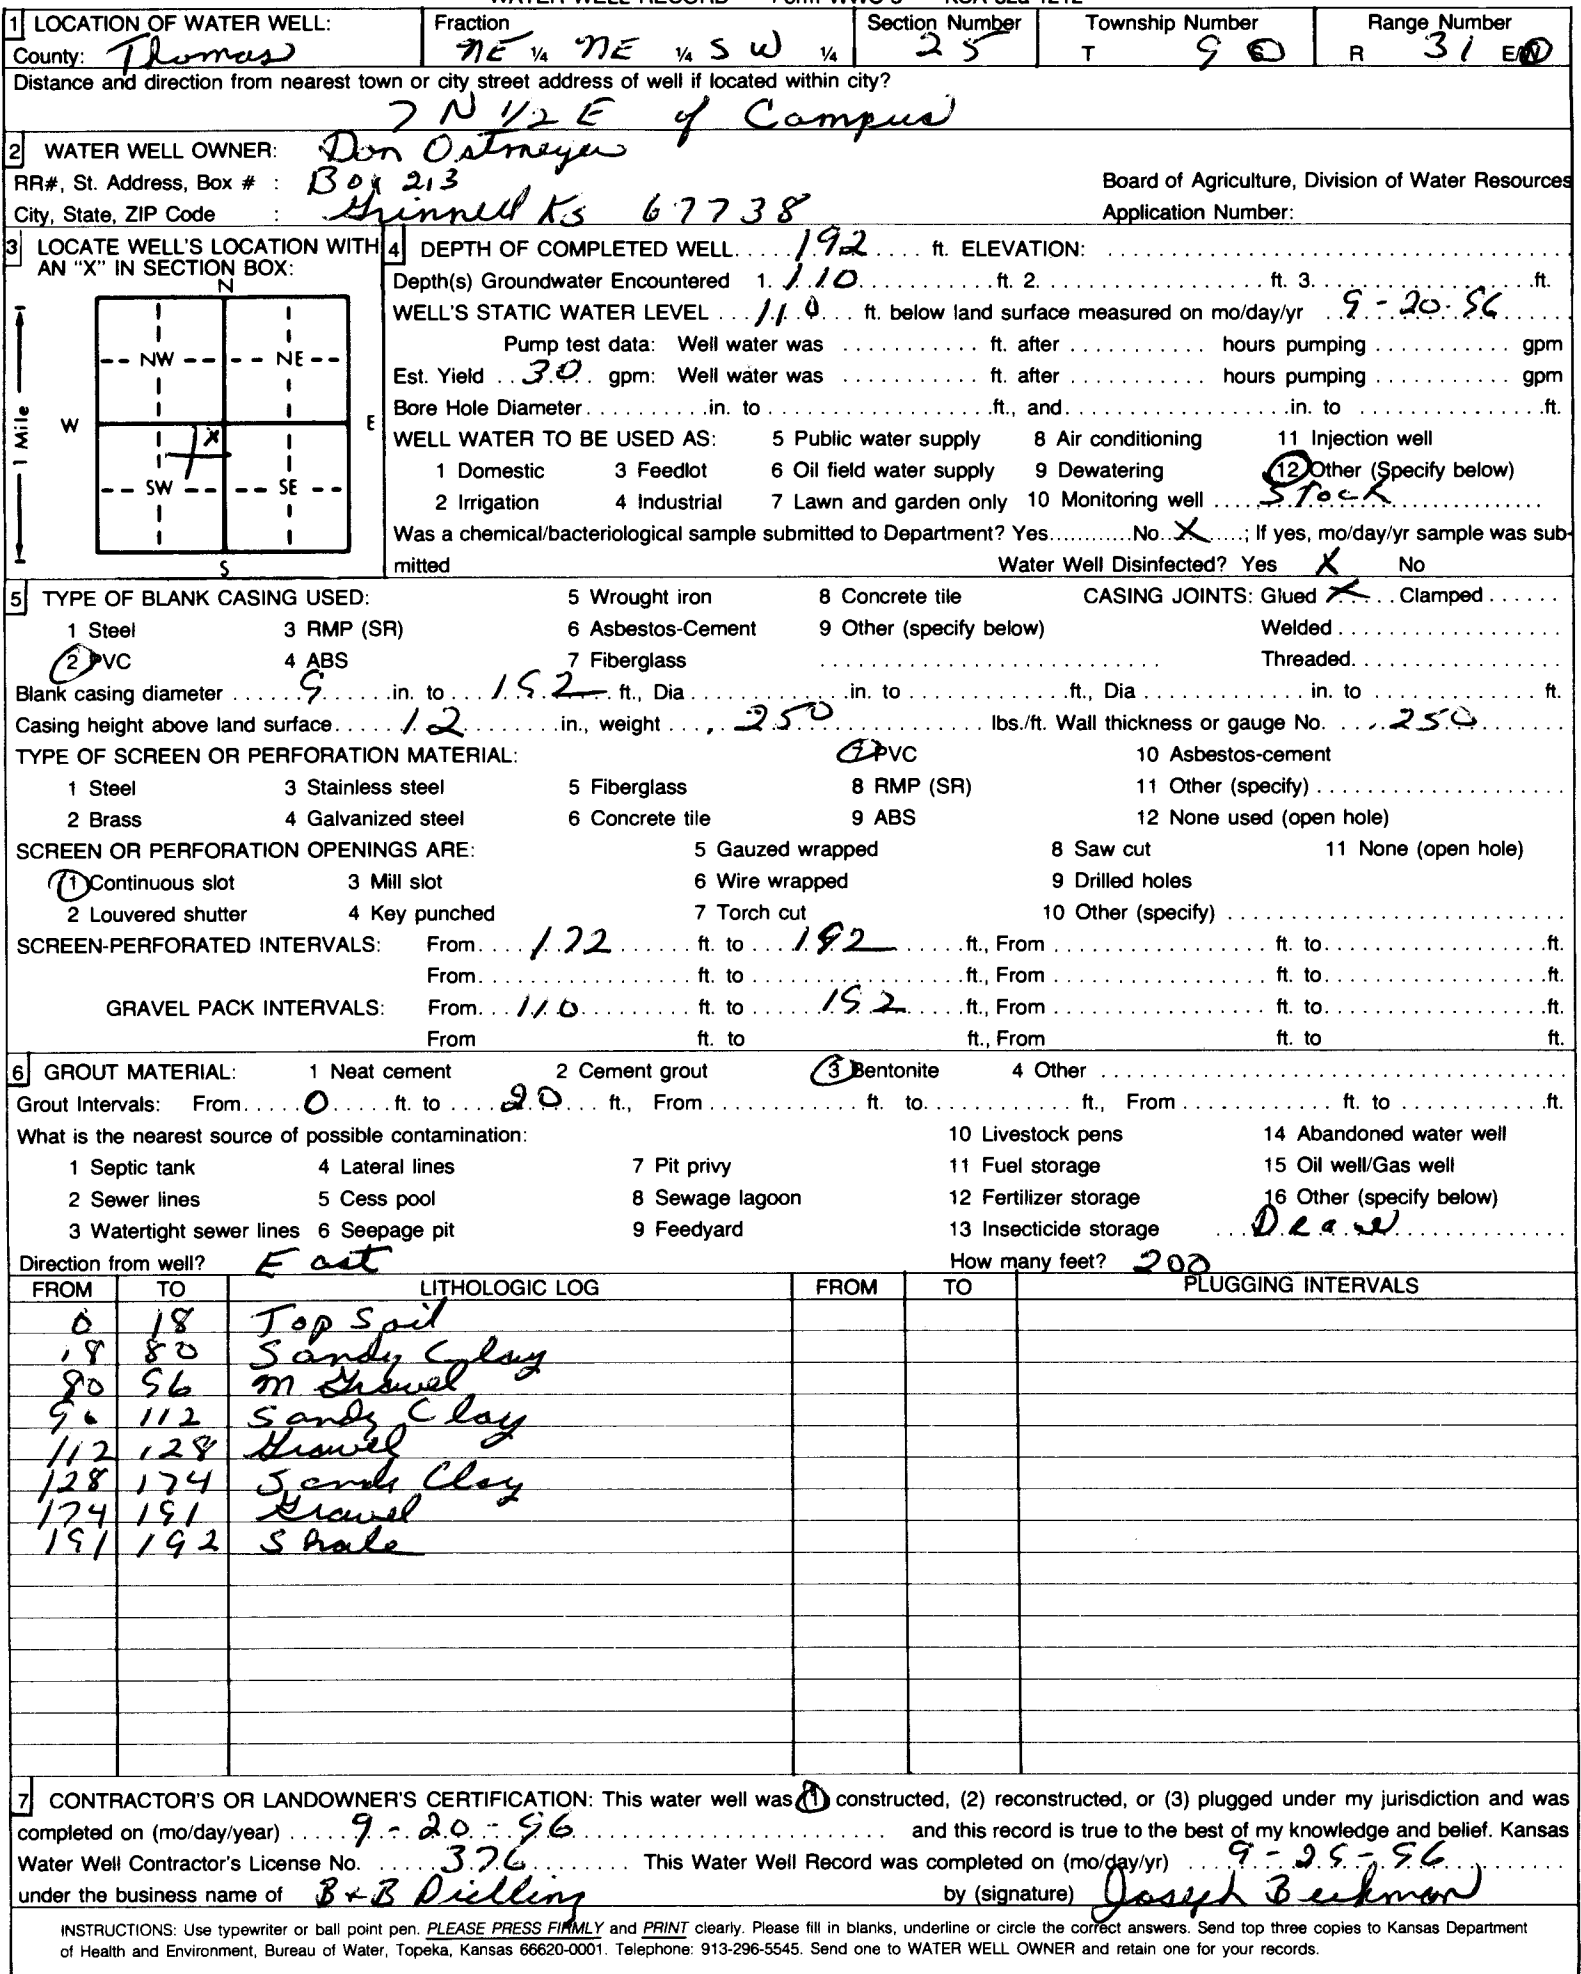 WATER WELL RECORD Form WWC-5 KSA 82a-1212
1 LOCATION OF WATER WELL: Fraction Section Number Township Number Range Number
County: Thomas NE ¼ NE ¼ SW ¼ 25 T 9 S R 31 E/W
Distance and direction from nearest town or city street address of well if located within city?
7 N 1/2 E of Campus
2 WATER WELL OWNER: Don Ostmeyer
RR#, St. Address, Box # : Box 213 Board of Agriculture, Division of Water Resources
City, State, ZIP Code : Grinnell Ks 67738 Application Number:
3 LOCATE WELL'S LOCATION WITH AN "X" IN SECTION BOX:
N
NW NE
W E
X
SW SE
S
1 Mile
4 DEPTH OF COMPLETED WELL 192 ft. ELEVATION:
Depth(s) Groundwater Encountered 1. 110 ft. 2. ft. 3. ft.
WELL'S STATIC WATER LEVEL 110 ft. below land surface measured on mo/day/yr 9-20-96
Pump test data: Well water was ft. after hours pumping gpm
Est. Yield 30 gpm: Well water was ft. after hours pumping gpm
Bore Hole Diameter in. to ft., and in. to ft.
WELL WATER TO BE USED AS: 5 Public water supply 8 Air conditioning 11 Injection well
1 Domestic 3 Feedlot 6 Oil field water supply 9 Dewatering 12 Other (Specify below)
2 Irrigation 4 Industrial 7 Lawn and garden only 10 Monitoring well Stock
Was a chemical/bacteriological sample submitted to Department? Yes No X ; If yes, mo/day/yr sample was sub-
mitted Water Well Disinfected? Yes X No
5 TYPE OF BLANK CASING USED: 5 Wrought iron 8 Concrete tile CASING JOINTS: Glued X Clamped
1 Steel 3 RMP (SR) 6 Asbestos-Cement 9 Other (specify below) Welded
2 PVC 4 ABS 7 Fiberglass Threaded
Blank casing diameter 5 in. to 192 ft., Dia in. to ft., Dia in. to ft.
Casing height above land surface 12 in., weight .250 lbs./ft. Wall thickness or gauge No. .250
TYPE OF SCREEN OR PERFORATION MATERIAL: 7 PVC 10 Asbestos-cement
1 Steel 3 Stainless steel 5 Fiberglass 8 RMP (SR) 11 Other (specify)
2 Brass 4 Galvanized steel 6 Concrete tile 9 ABS 12 None used (open hole)
SCREEN OR PERFORATION OPENINGS ARE: 5 Gauzed wrapped 8 Saw cut 11 None (open hole)
1 Continuous slot 3 Mill slot 6 Wire wrapped 9 Drilled holes
2 Louvered shutter 4 Key punched 7 Torch cut 10 Other (specify)
SCREEN-PERFORATED INTERVALS: From 172 ft. to 192 ft., From ft. to ft.
From ft. to ft., From ft. to ft.
GRAVEL PACK INTERVALS: From 110 ft. to 192 ft., From ft. to ft.
From ft. to ft., From ft. to ft.
6 GROUT MATERIAL: 1 Neat cement 2 Cement grout 3 Bentonite 4 Other
Grout Intervals: From 0 ft. to 20 ft., From ft. to ft., From ft. to ft.
What is the nearest source of possible contamination: 10 Livestock pens 14 Abandoned water well
1 Septic tank 4 Lateral lines 7 Pit privy 11 Fuel storage 15 Oil well/Gas well
2 Sewer lines 5 Cess pool 8 Sewage lagoon 12 Fertilizer storage 16 Other (specify below)
3 Watertight sewer lines 6 Seepage pit 9 Feedyard 13 Insecticide storage Draw
Direction from well? East How many feet? 200
FROM TO LITHOLOGIC LOG FROM TO PLUGGING INTERVALS
0 18 Top Soil
18 80 Sandy Clay
80 96 M Gravel
96 112 Sandy Clay
112 128 Gravel
128 174 Sandy Clay
174 191 Gravel
191 192 Shale
7 CONTRACTOR'S OR LANDOWNER'S CERTIFICATION: This water well was (1) constructed, (2) reconstructed, or (3) plugged under my jurisdiction and was
completed on (mo/day/year) 9-20-96 and this record is true to the best of my knowledge and belief. Kansas
Water Well Contractor's License No. 376 This Water Well Record was completed on (mo/day/yr) 9-25-96
under the business name of B & B Drilling by (signature) Joseph Beckman
INSTRUCTIONS: Use typewriter or ball point pen. PLEASE PRESS FIRMLY and PRINT clearly. Please fill in blanks, underline or circle the correct answers. Send top three copies to Kansas Department
of Health and Environment, Bureau of Water, Topeka, Kansas 66620-0001. Telephone: 913-296-5545. Send one to WATER WELL OWNER and retain one for your records.